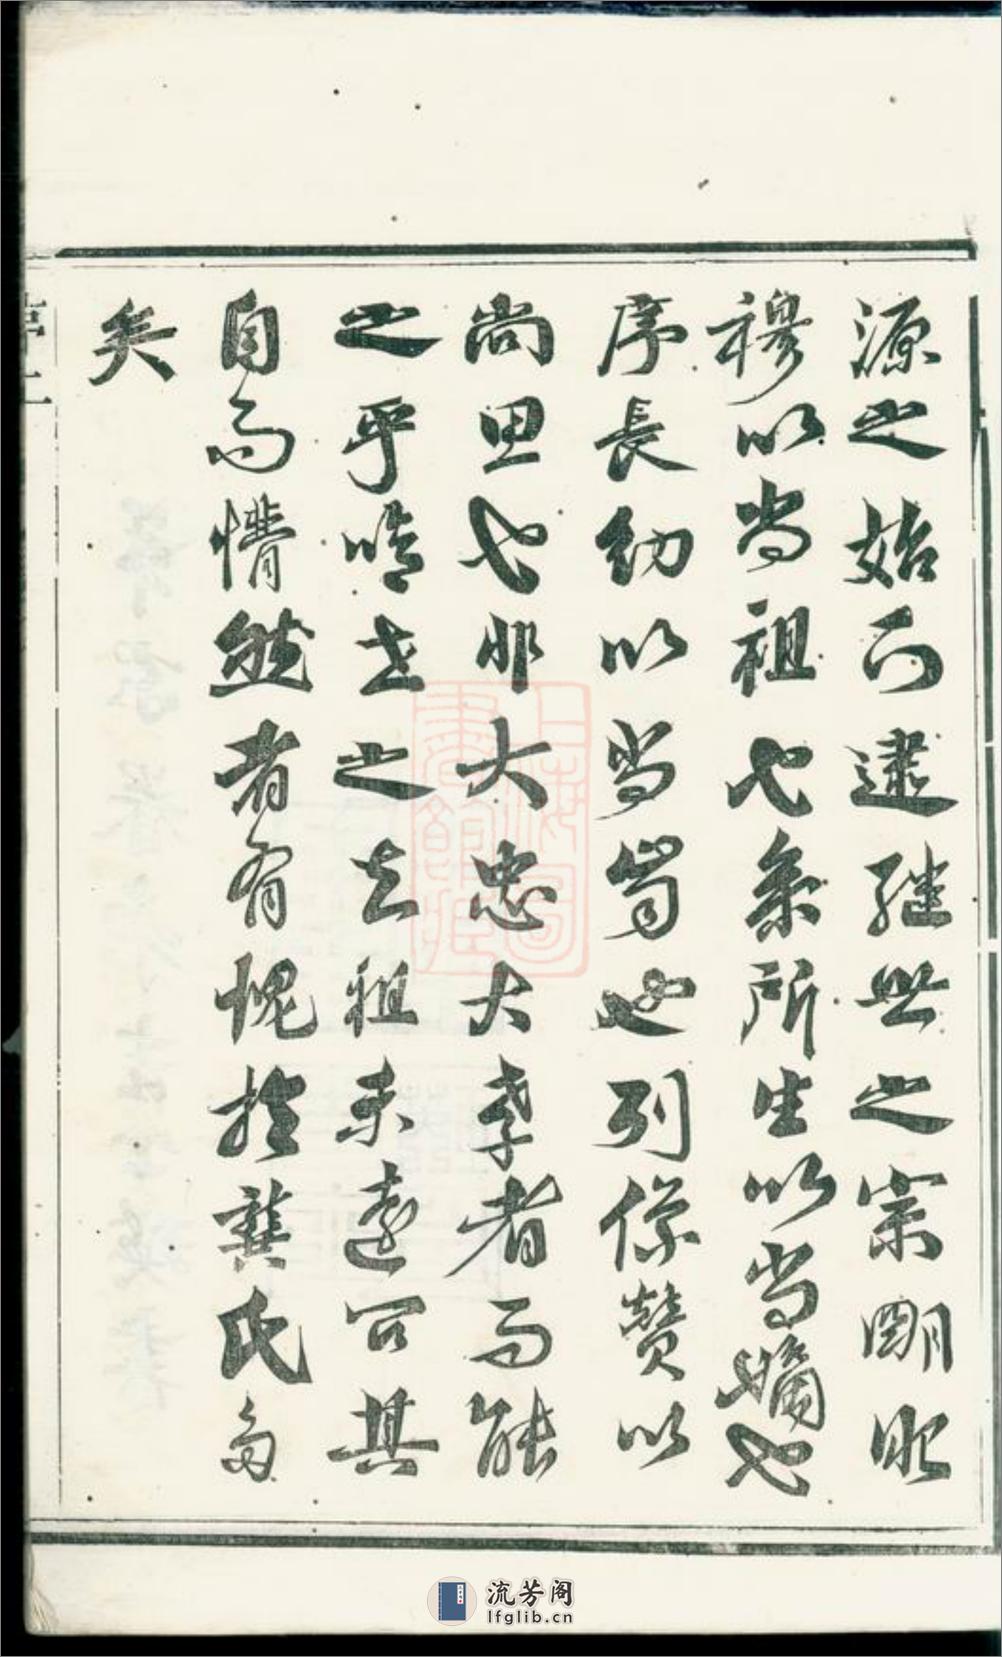 源之始而逮繼世之宗明昭
穆以尚祖也系所生以尚嫡也
序長幼以尚齒也列像贊以
尚思也非大忠大孝者而能
之乎噫世之去祖未遠而其
自而懵然者有愧於龔氏多
矣
流芳阁
lfglib.cn